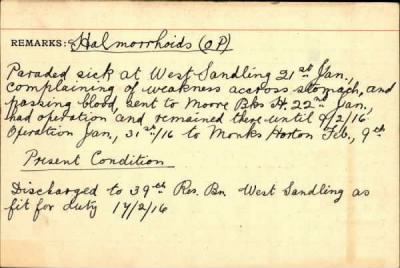 REMARKS: Halmorrhoids (OP)
Paraded sick at West Sandling 21st Jan.,
complaining of weakness accross stomach, and
passing blood, sent to Moore Bks H. 22nd Jan.,
had operation and remained there until 9/2/16
Operation Jan, 31st/16 to Monks Horton Feb., 9th
Present Condition
Discharged to 39th Res. Bn West Sandling as
fit for duty 17/2/16